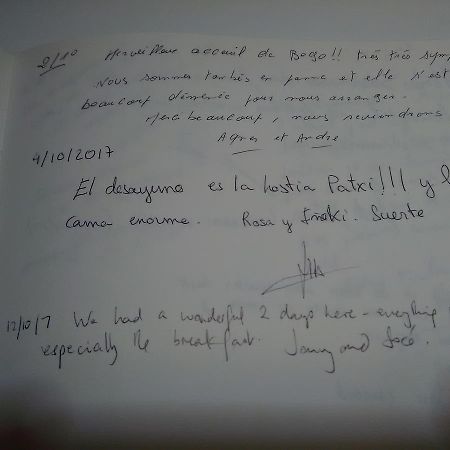 2/10 Merveilleux accueil de Bego!! très très sym
Nous sommes tombés en panne et elle s'est
beaucoup démenée pour nous arranger.
Merci beaucoup, nous reviendrons
Agnes et Andre
4/10/2017
El desayuno es la hostia Patxi!!! y l
cama enorme. Rosa y Iñaki. Suerte
12/10/7 We had a wonderful 2 days here - everything
especially the breakfast. and José.